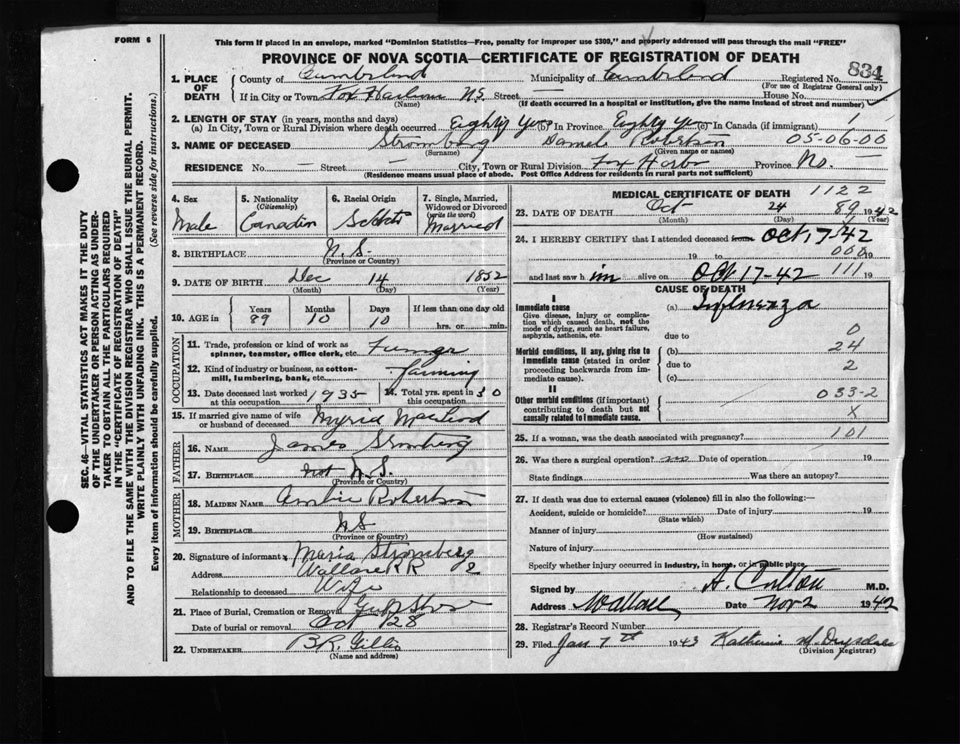 FORM 6
This form if placed in an envelope, marked "Dominion Statistics—Free, penalty for improper use $300," and properly addressed will pass through the mail "FREE"
PROVINCE OF NOVA SCOTIA—CERTIFICATE OF REGISTRATION OF DEATH
834
1. PLACE OF DEATH
County of Cumberland Municipality of Cumberland Registered No.
(For use of Registrar General only)
If in City or Town Fox Harbour N.S. Street — House No.
(Name) (If death occurred in a hospital or institution, give the name instead of street and number)
2. LENGTH OF STAY (in years, months and days)
(a) In City, Town or Rural Division where death occurred Eighty Yrs (b) In Province Eighty Yrs (c) In Canada (if immigrant)
3. NAME OF DECEASED Stromberg Daniel Robertson 05-06-00
(Surname) (Given name or names)
RESIDENCE No. — Street — City, Town or Rural Division Fox Harbor Province
(Residence means usual place of abode. Post Office Address for residents in rural parts not sufficient)
4. Sex Male
5. Nationality (Citizenship) Canadian
6. Racial Origin
7. Single, Married, Widowed or Divorced (write the word) Married
8. BIRTHPLACE N.S.
(Province or Country)
9. DATE OF BIRTH Dec 14 1852
(Month) (Day) (Year)
10. AGE in Years 89 Months 10 Days 10 If less than one day old hrs. or min.
OCCUPATION
11. Trade, profession or kind of work as spinner, teamster, office clerk, etc. Farmer
12. Kind of industry or business, as cotton-mill, lumbering, bank, etc. Farming
13. Date deceased last worked at this occupation 1935 14. Total yrs. spent in this occupation 30
15. If married give name of wife or husband of deceased
FATHER
16. NAME James Stromberg
17. BIRTHPLACE N.S.
(Province or Country)
MOTHER
18. MAIDEN NAME Robertson
19. BIRTHPLACE N S
(Province or Country)
20. Signature of informant Maria Stromberg
Address Wallace R R 2
Relationship to deceased Wife
21. Place of Burial, Cremation or Removal Gulf Shore
Date of burial or removal Oct 28
22. UNDERTAKER
(Name and address)
MEDICAL CERTIFICATE OF DEATH 1122
23. DATE OF DEATH Oct 24 89 1942
(Month) (Day) (Year)
24. I HEREBY CERTIFY that I attended deceased from Oct 17-42
19 to 19
and last saw him alive on Oct 17-42 111 19
CAUSE OF DEATH
I
Immediate cause
Give disease, injury or complication which caused death, not the mode of dying, such as heart failure, asphyxia, asthenia, etc.
(a) Influenza
due to 0
Morbid conditions, if any, giving rise to immediate cause (stated in order proceeding backwards from immediate cause).
(b) 24
due to 2
(c)
II
Other morbid conditions (if important) contributing to death but not causally related to immediate cause.
033-2
X
25. If a woman, was the death associated with pregnancy? 101
26. Was there a surgical operation? no Date of operation 19
State findings Was there an autopsy?
27. If death was due to external causes (violence) fill in also the following:—
Accident, suicide or homicide? Date of injury 19
(State which)
Manner of injury
(How sustained)
Nature of injury
Specify whether injury occurred in industry, in home, or in public place.
Signed by M.D.
Address Wallace Date Nov 2 1942
28. Registrar's Record Number
29. Filed Jan 7th 1943
(Division Registrar)
SEC. 46—VITAL STATISTICS ACT MAKES IT THE DUTY
OF THE UNDERTAKER OR PERSON ACTING AS UNDER-
TAKER TO OBTAIN ALL THE PARTICULARS REQUIRED
IN THE "CERTIFICATE OF REGISTRATION OF DEATH"
AND TO FILE THE SAME WITH THE DIVISION REGISTRAR WHO SHALL ISSUE THE BURIAL PERMIT.
WRITE PLAINLY WITH UNFADING INK. THIS IS A PERMANENT RECORD.
Every item of information should be carefully supplied. (See reverse side for instructions.)